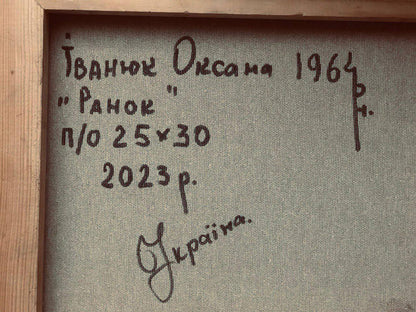 Іванюк Оксана 1964 р.н.
"Ранок"
п/о 25×30
2023 р.
Україна.